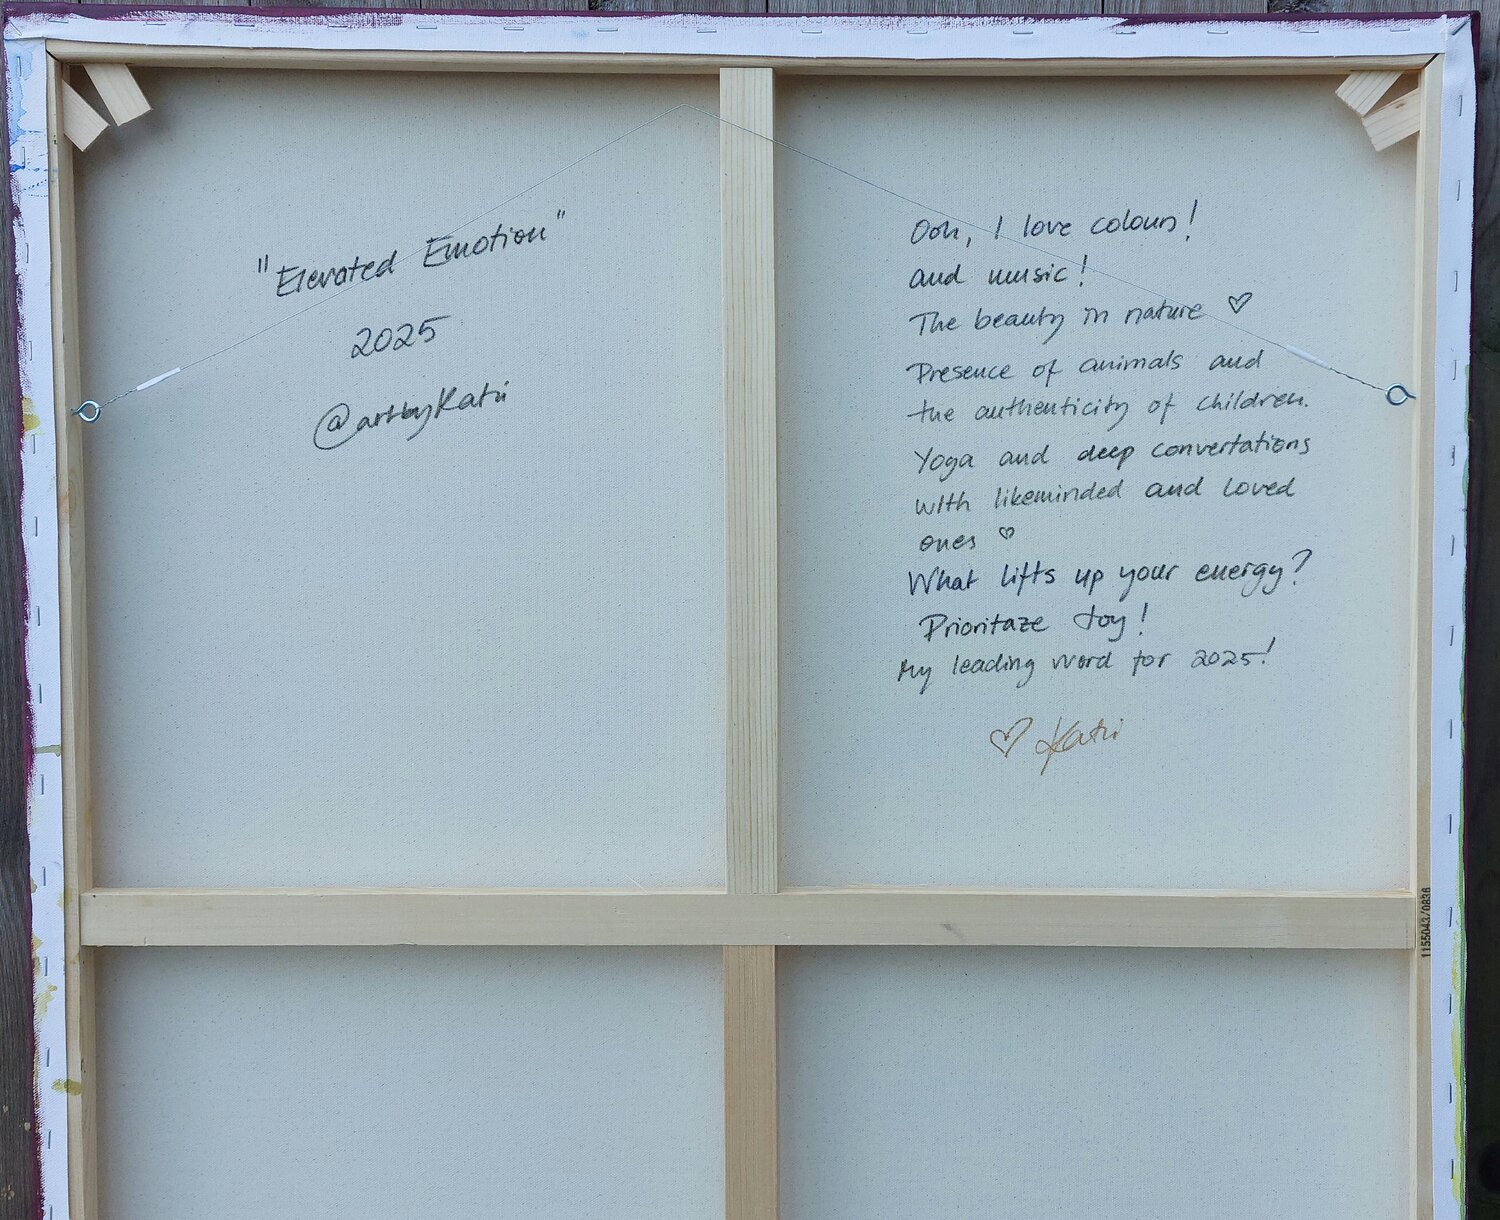 "Elevated Emotion"
2025
@artbyKatri
Ooh, I love colours!
and music!
The beauty in nature ♡
Presence of animals and
the authenticity of children.
Yoga and deep convertations
with likeminded and loved
ones ♡
What lifts up your energy?
Prioritaze Joy!
My leading word for 2025!
♡ Katri
1155043/0836